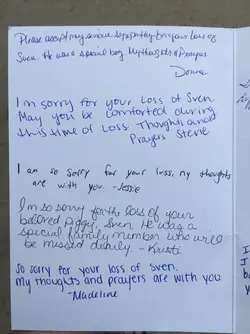 Please accept my serious sympathy for your loss of
Sven. He was a special boy. My thoughts & Prayers
Donna
I'm sorry for your Loss of Sven.
May you be comforted during
this time of Loss. Thoughts and
Prayers Steve
I am so sorry for your loss, my thoughts
are with you. -Jessie
I'm so sorry for the loss of your
beloved piggy, Sven. He was a
special family member who will
be missed dearly. - Kristi
So sorry for your loss of Sven.
My thoughts and prayers are with you
-Madeline